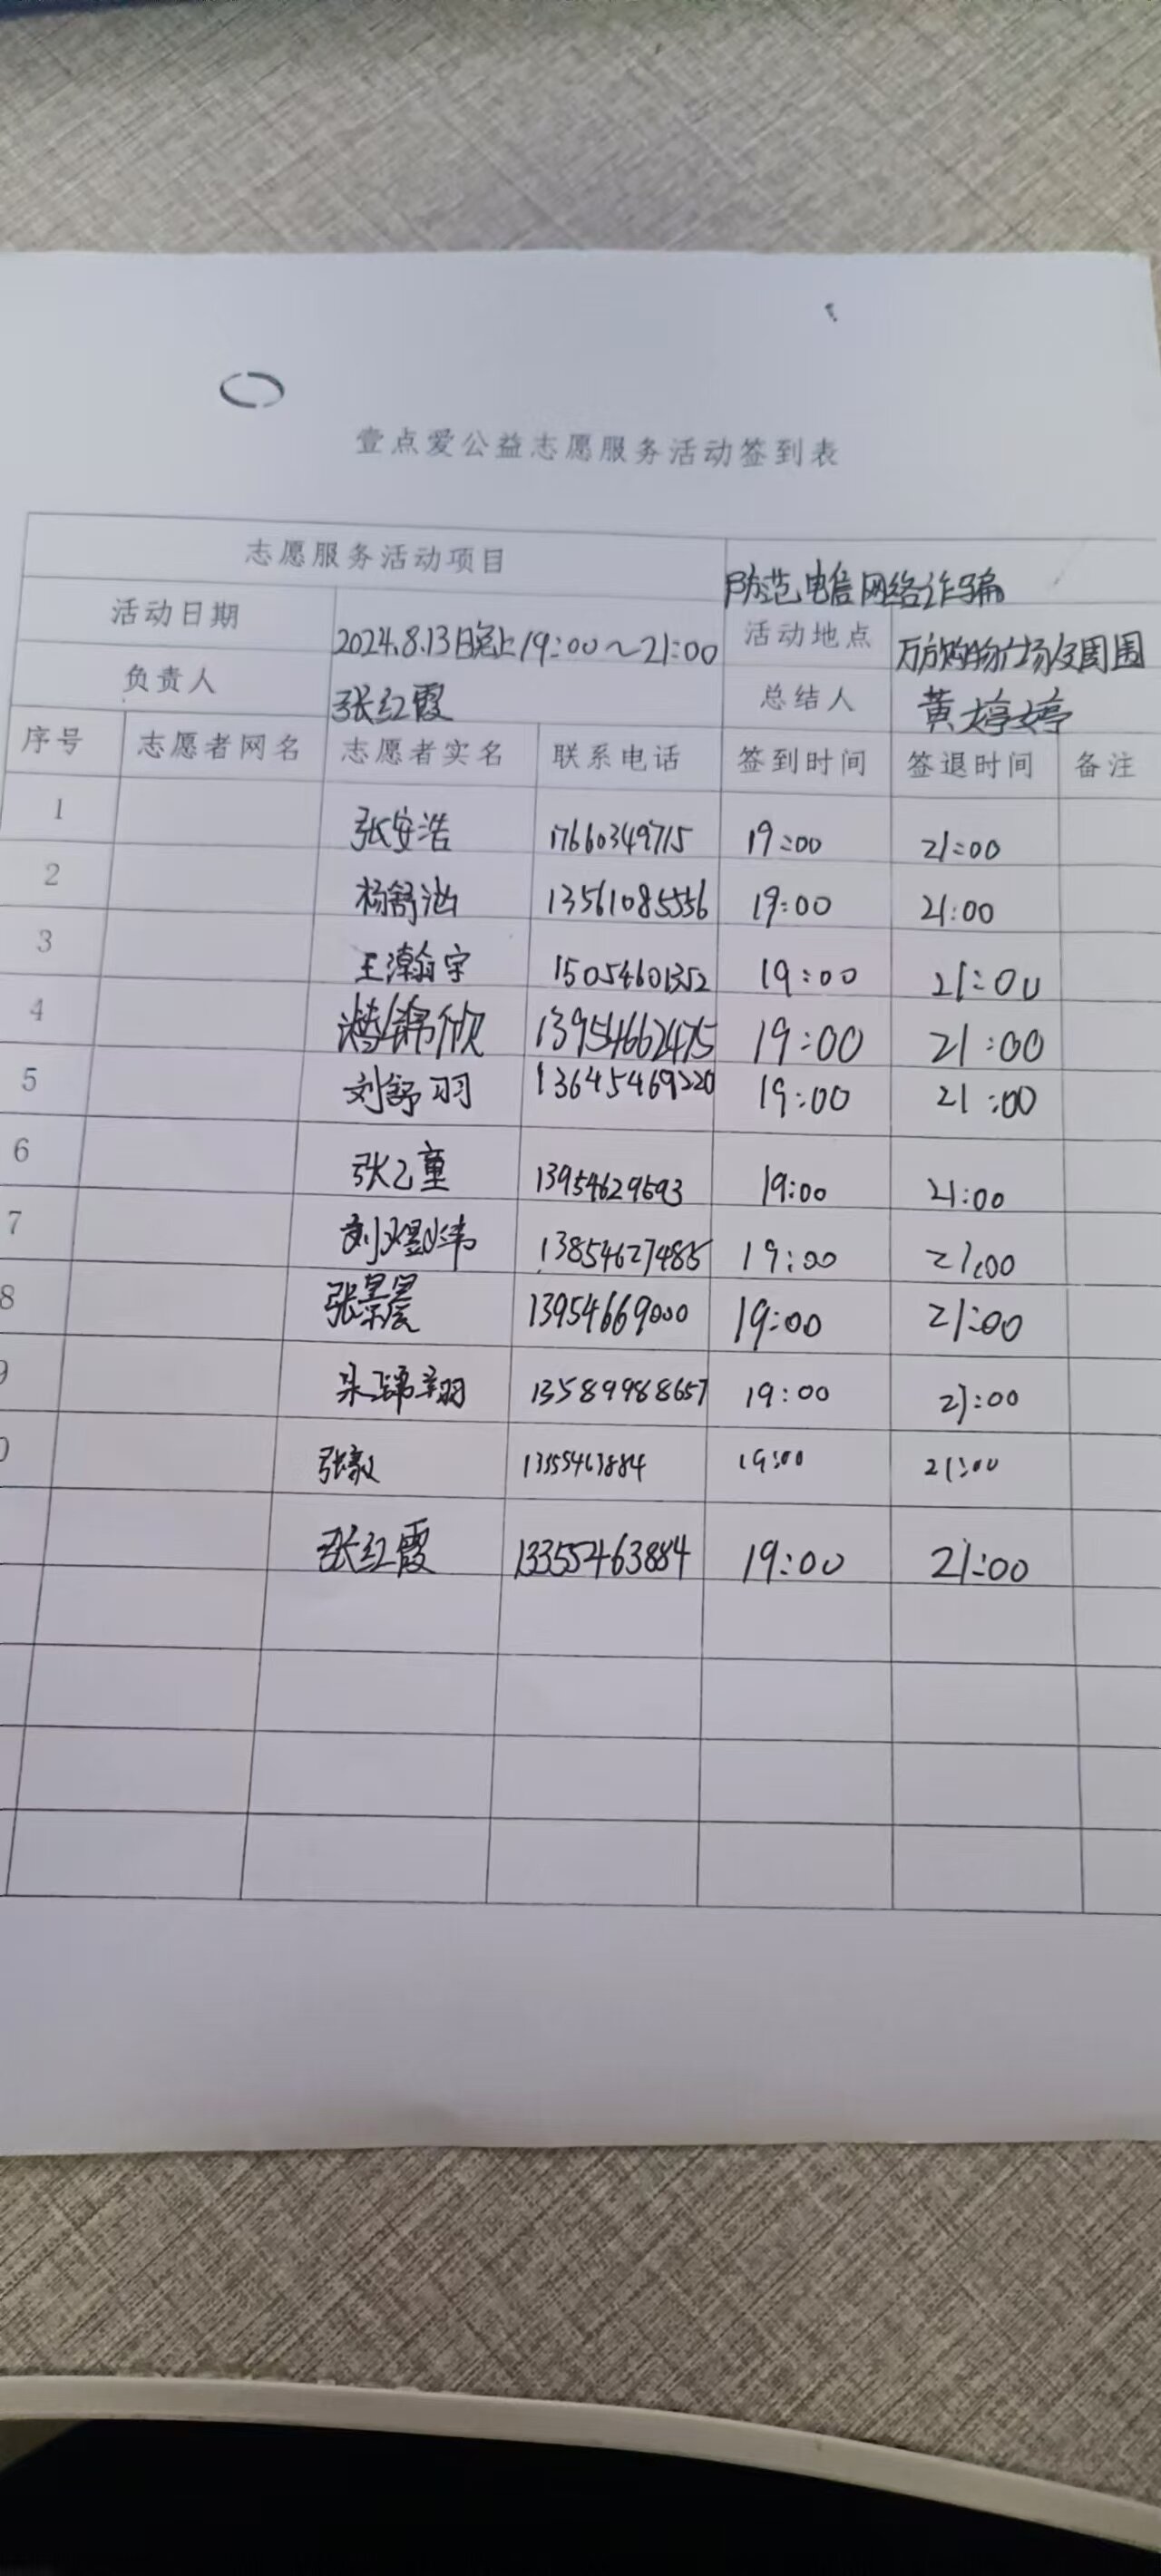 壹点爱公益志愿服务活动签到表
志愿服务活动项目 防范电信网络诈骗
活动日期 2024.8.13日晚上19:00~21:00 活动地点 万方购物广场及周围
负责人 张红霞 总结人 黄婷婷
序号 志愿者网名 志愿者实名 联系电话 签到时间 签退时间 备注
1 张安浩 17660349715 19:00 21:00
2 杨舒涵 13561085556 19:00 21:00
3 王瀚宇 15054601352 19:00 21:00
4 13954662475 19:00 21:00
5 刘舒羽 13645469220 19:00 21:00
6 张乙童 13954629693 19:00 21:00
7 刘煜炜 13854627485 19:00 21:00
8 张景晨 13954669000 19:00 21:00
9 13589988657 19:00 21:00
0 张毅 19:00 21:00
张红霞 13355463884 19:00 21:00